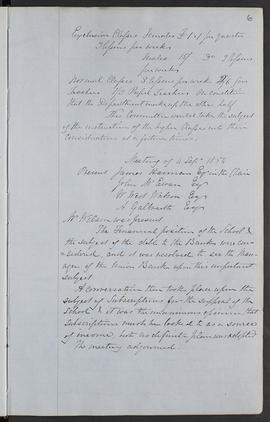 6
Exclusive Classes Females £1.1/ for quarter
3 lessons per week
Males 15/ Do 3 lessons
per week
Normal Classes 3 lessons per week 2/6 for
teachers 1/3 Pupil Teachers on condition
that the Department make up the other half
The Committee would take the subject
of the instruction of the higher Classes into their
consideration at a future time.
Meeting of 4 Sept. 1850
Present James Hannan Esq in the Chair
John McEwan Esq
W West Watson Esq
A Galbraith Esq
Mr Wilson was present
The Financial position of the School &
the subject of the debt to the Bank were con-
sidered, and it was resolved to see the Man-
ager of the Union Bank upon this important
subject
A conversation then took place upon the
subject of Subscriptions for the support of the
School & it was the unanimous opinion that
Subscriptions must be looked to as a source
of income, but no definite plan was adopted
The meeting adjourned.